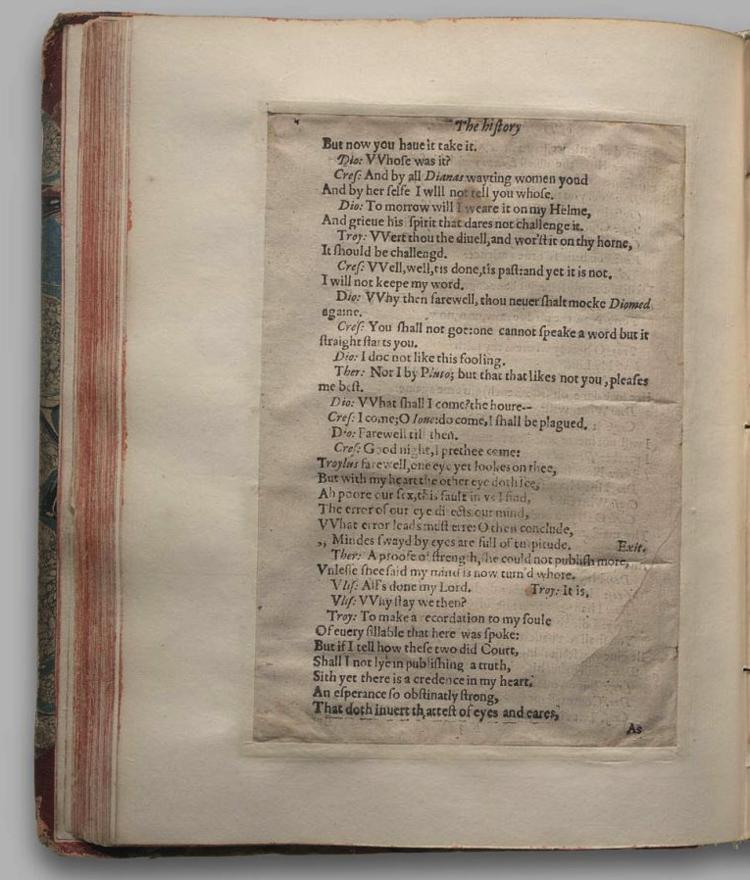 The hiſtory
But now you haue it take it.
Dio: VVhoſe was it?
Creſ: And by all Dianas wayting women yond
And by her ſelfe I wlll not tell you whoſe.
Dio: To morrow will I weare it on my Helme,
And grieue his ſpirit that dares not challenge it.
Troy: VVert thou the diuell, and wor'ſt it on thy horne,
It ſhould be challengd.
Creſ: VVell, well, tis done, tis paſt: and yet it is not.
I will not keepe my word.
Dio: VVhy then farewell, thou neuer ſhalt mocke Diomed
againe.
Creſ: You ſhall not goe: one cannot ſpeake a word but it
ſtraight ſtarts you.
Dio: I doe not like this fooling.
Ther: Nor I by Pluto; but that that likes not you, pleaſes
me beſt.
Dio: VVhat ſhall I come? the houre--
Creſ: I come; O Ioue: do come, I ſhall be plagued.
Dio: Farewell till then.
Creſ: Good night, I prethee come:
Troylus farewell, one eye yet lookes on thee,
But with my heart the other eye doth ſee,
Ah poore our ſex, this fault in vs I find,
The error of our eye directs our mind,
VVhat error leads muſt erre: O then conclude,
„ Mindes ſwayd by eyes are full of turpitude. Exit.
Ther: A proofe of ſtrength, ſhe could not publiſh more,
Vnleſſe ſhee ſaid my mind is now turn'd whore.
Vliſ: All's done my Lord. Troy: It is.
Vliſ: VVhy ſtay we then?
Troy: To make a recordation to my ſoule
Of euery ſillable that here was ſpoke:
But if I tell how theſe two did Court,
Shall I not lye in publiſhing a truth,
Sith yet there is a credence in my heart.
An eſperance ſo obſtinatly ſtrong,
That doth inuert th'atteſt of eyes and eares,
As